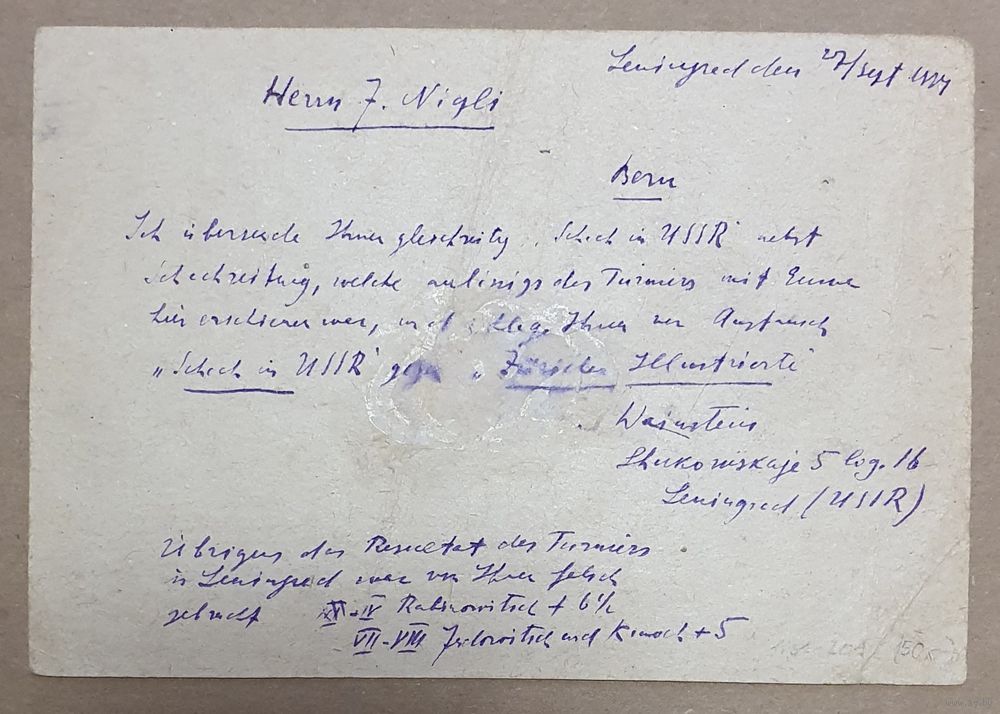 Leningrad den 27/Sept 1934
Herrn J. Nigli
Bern
Ich übersende Ihnen gleichzeitig „Schach in USSR" nebst
Schachzeitung, welche anlässigs des Turniers mit Euwe
hier erschienen war, und schlage Ihnen vor Austausch
„Schach in USSR" gegen „Züricher Illustrierte"
Wainstein
Shukowskaje 5 log. 16
Leningrad (USSR)
Übrigens das Resultat des Turniers
in Leningrad war von Ihnen falsch
gebracht
IV Rabinowitsch + 6½
VII-VIII und Kmoch + 5
150